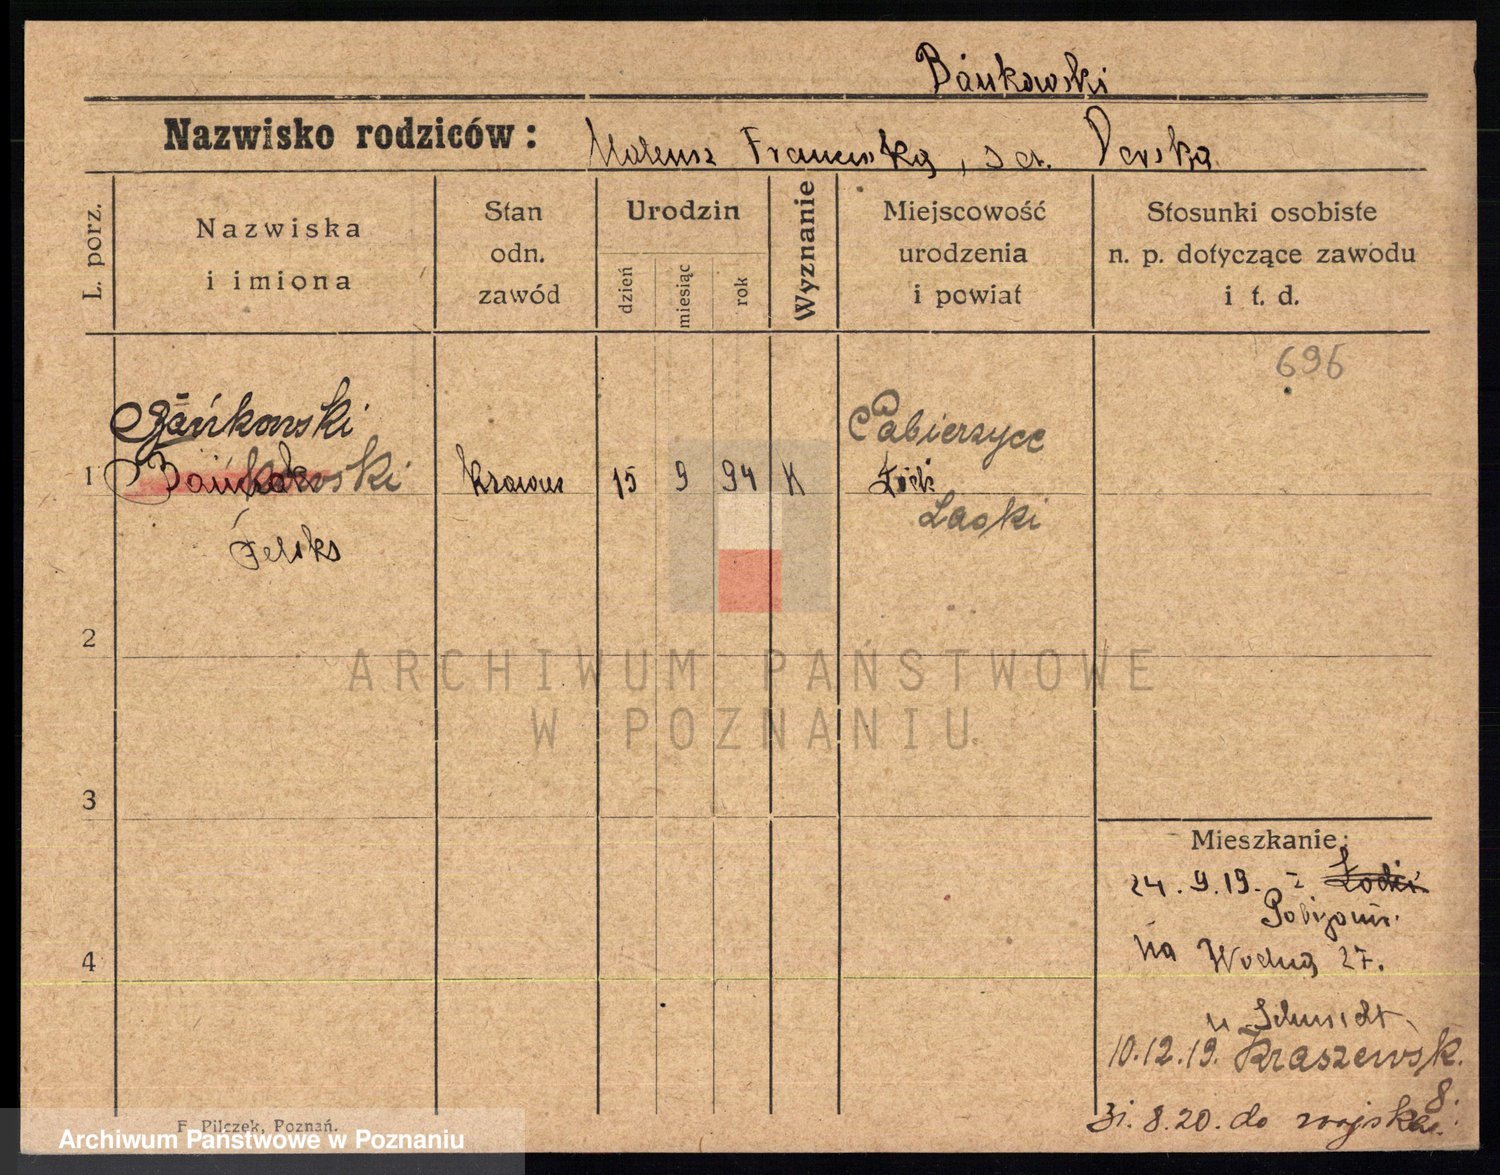 Bańkowski
Nazwisko rodziców:
Mateusz Franciszka, z d.
L. porz.
Nazwiska
i imiona
Stan
odn.
zawód
Urodzin
dzień
miesiąc
rok
Wyznanie
Miejscowość
urodzenia
i powiat
Stosunki osobiste
n. p. dotyczące zawodu
i t. d.
696
1
Bańkowski
Bańkowski
Feliks
krawiec
15
9
94
K
Łódź
Laski
2
ARCHIWUM PAŃSTWOWE
W POZNANIU
3
4
Mieszkanie:
24. 9. 19. z Łodzi
na Wodną 27.
u Schmidt.
10.12.19. Kraszewsk.
8.
31.8.20. do wojska.
F. Pilczek, Poznań.
Archiwum Państwowe w Poznaniu